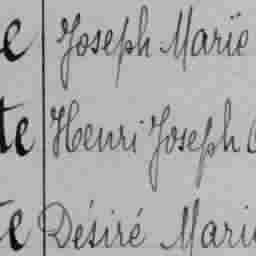 e Joseph Marie
te Henri Joseph
te Désiré Marie